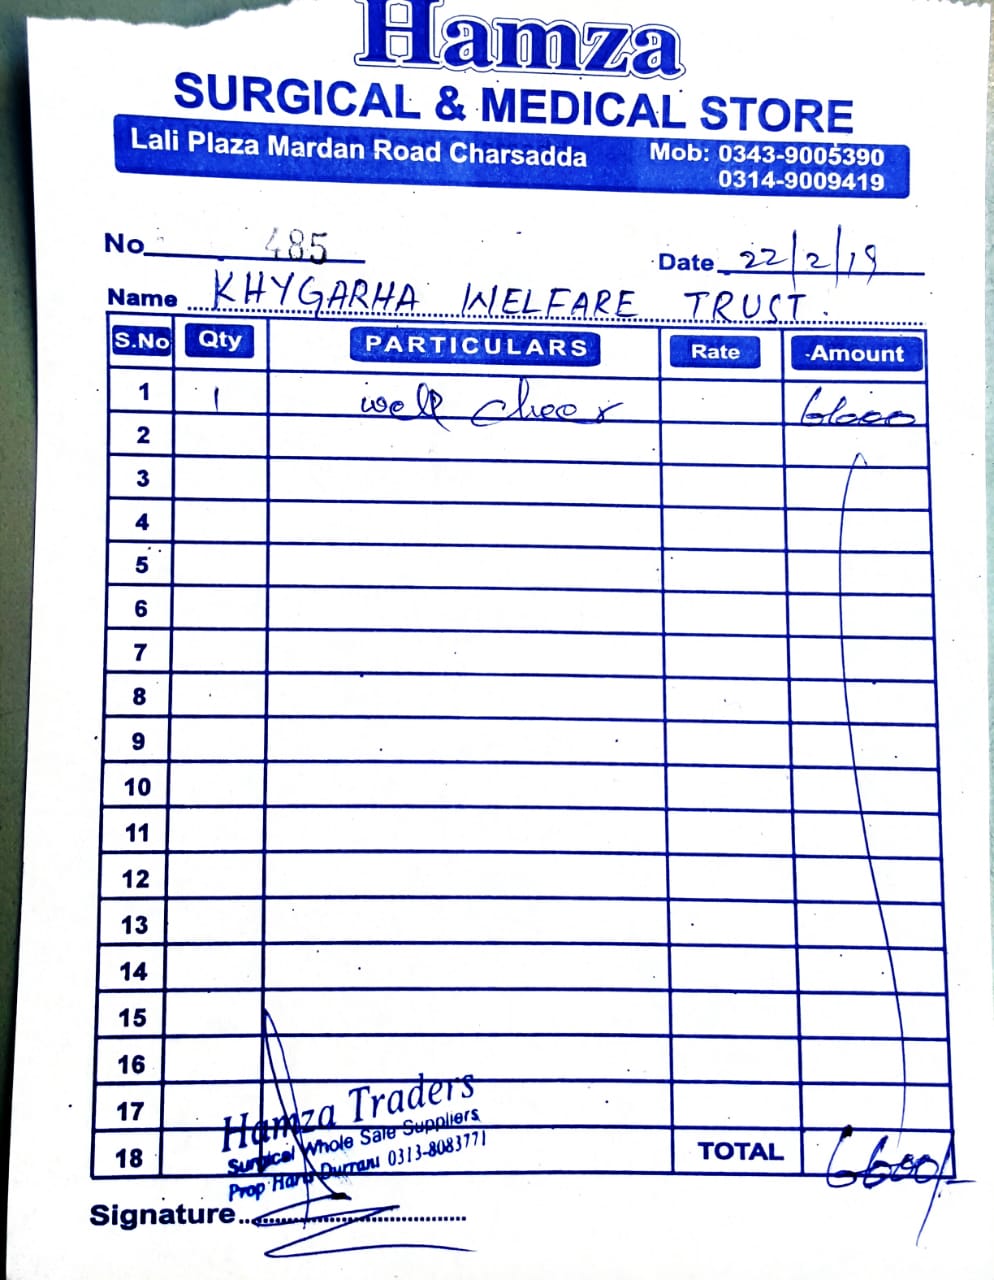 Hamza
SURGICAL & MEDICAL STORE
Lali Plaza Mardan Road Charsadda Mob: 0343-9005390
0314-9009419
No 485 Date 22/2/19
Name KHYGARHA WELFARE TRUST.
S.No Qty PARTICULARS Rate Amount
1 1 well cheer
2
3
4
5
6
7
8
9
10
11
12
13
14
15
16
17
18 TOTAL 6600/-
Hamza Traders
Surgical Whole Sale Suppliers
Prop Haris Durrani 0313-8083771
Signature